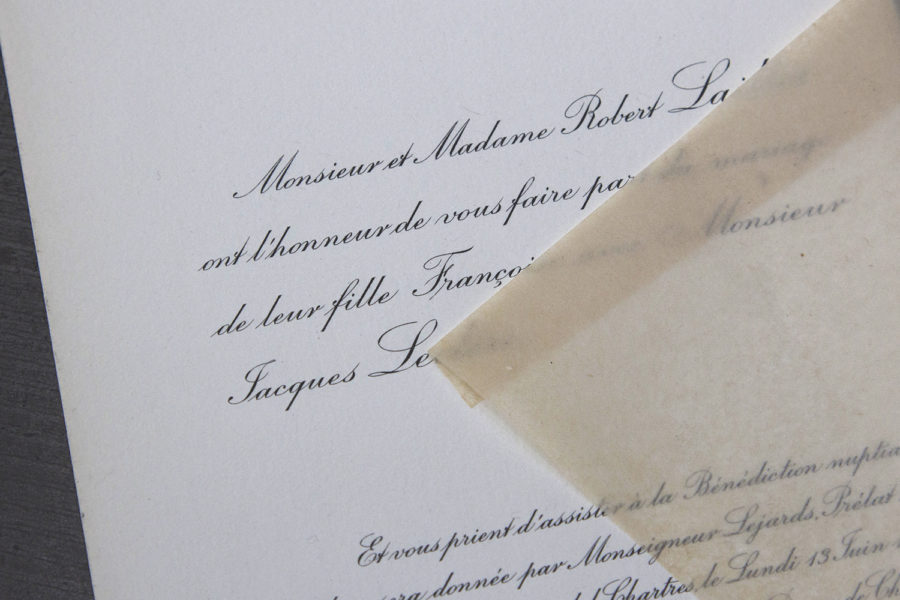 Monsieur et Madame Robert
ont l'honneur de vous faire part du mariage
de leur fille Monsieur
Jacques
Et vous prient d'assister à la Bénédiction
donnée par Monseigneur Lejards, Prélat
Chartres, le Lundi 13 Juin
de